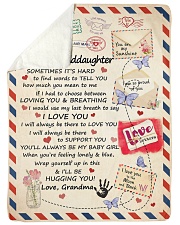 ddaughter
SOMETIMES IT'S HARD
to find words to TELL YOU
how much you mean to me
If I had to choose between
LOVING YOU & BREATHING
I would use my last breath to say
I LOVE YOU
I will always be there to LOVE YOU
I will always be there
to SUPPORT YOU
YOU'LL ALWAYS BE MY BABY GIRL
When you're feeling lonely & blue,
Wrap yourself up in this
& I'LL BE
HUGGING YOU!
Love, Grandma
You are my
Sunshine
so proud of
you
Love